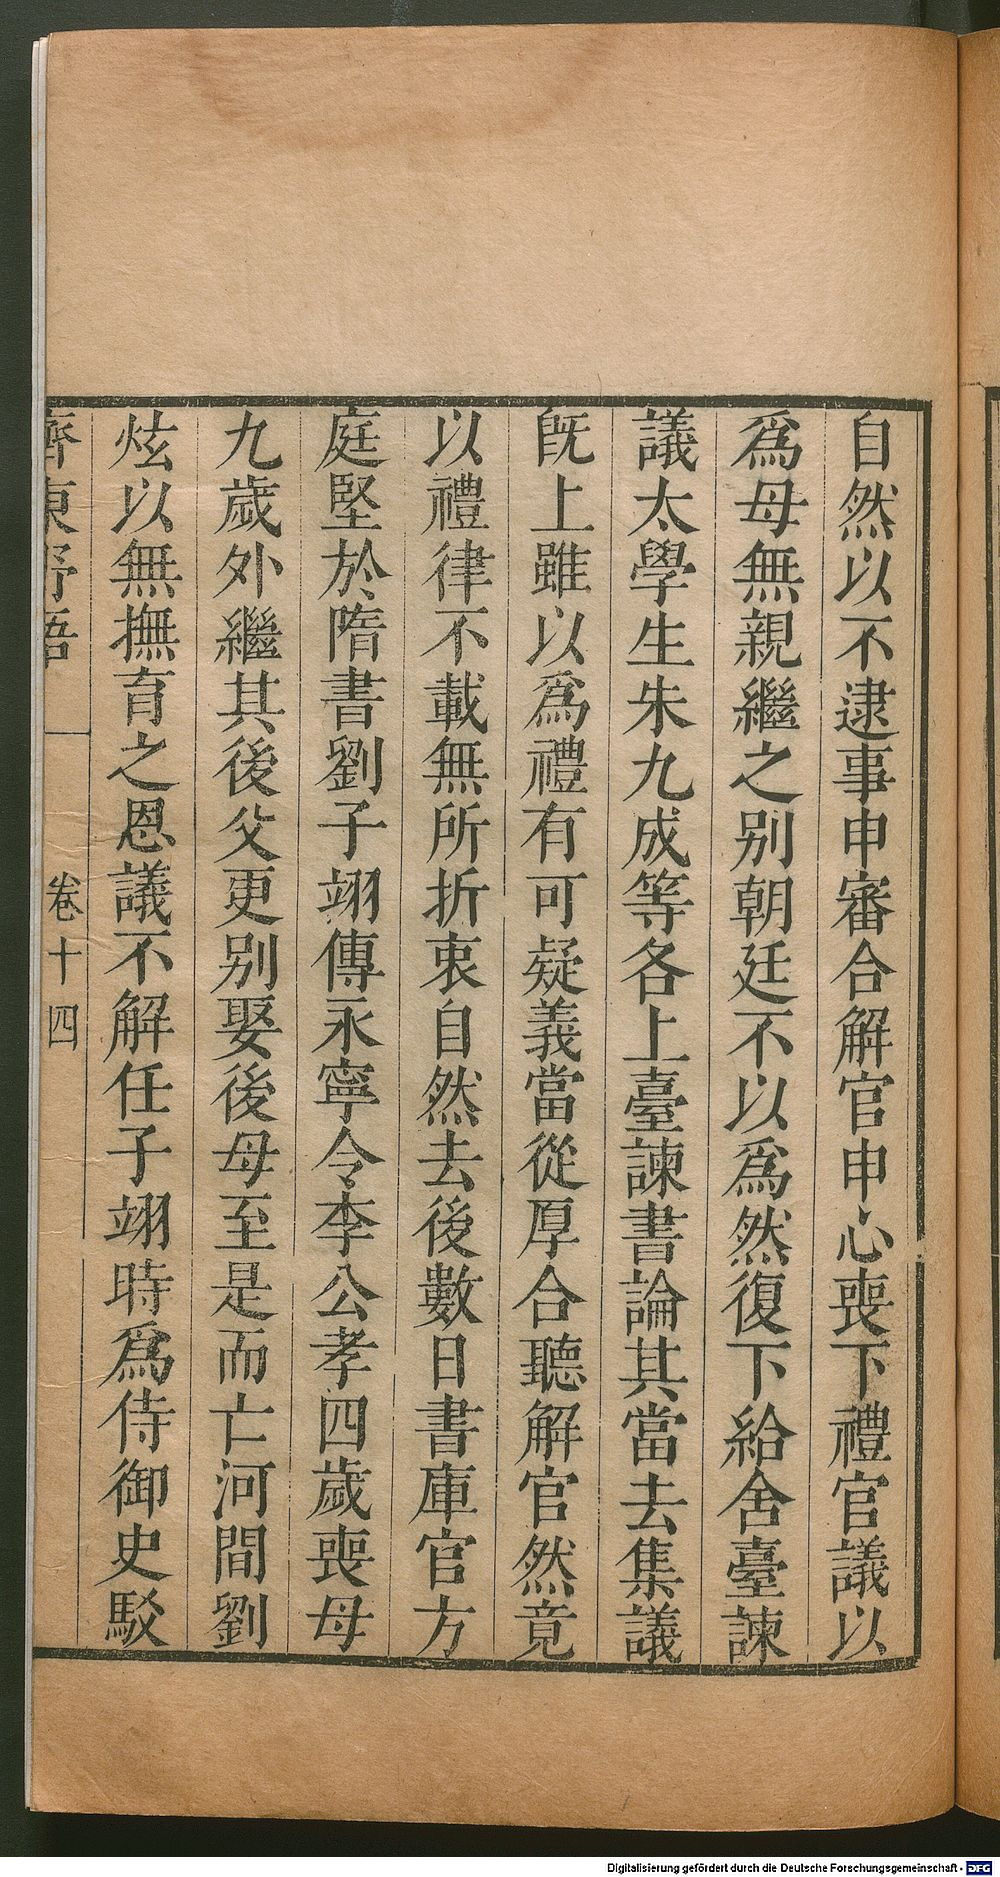 自然以不逮事申審合解官申心喪下禮官議以
爲母無親繼之别朝廷不以爲然復下給舍臺諫
議太學生朱九成等各上臺諫書論其當去集議
旣上雖以爲禮有可疑義當從厚合聽解官然竟
以禮律不載無所折衷自然去後數日書庫官方
庭堅於隋書劉子翊傳永寧令李公孝四歲喪母
九歲外繼其後父更别娶後母至是而亡河間劉
炫以無撫育之恩議不解任子翊時爲侍御史駮
齊東野語 卷十四
Digitalisierung gefördert durch die Deutsche Forschungsgemeinschaft - DFG